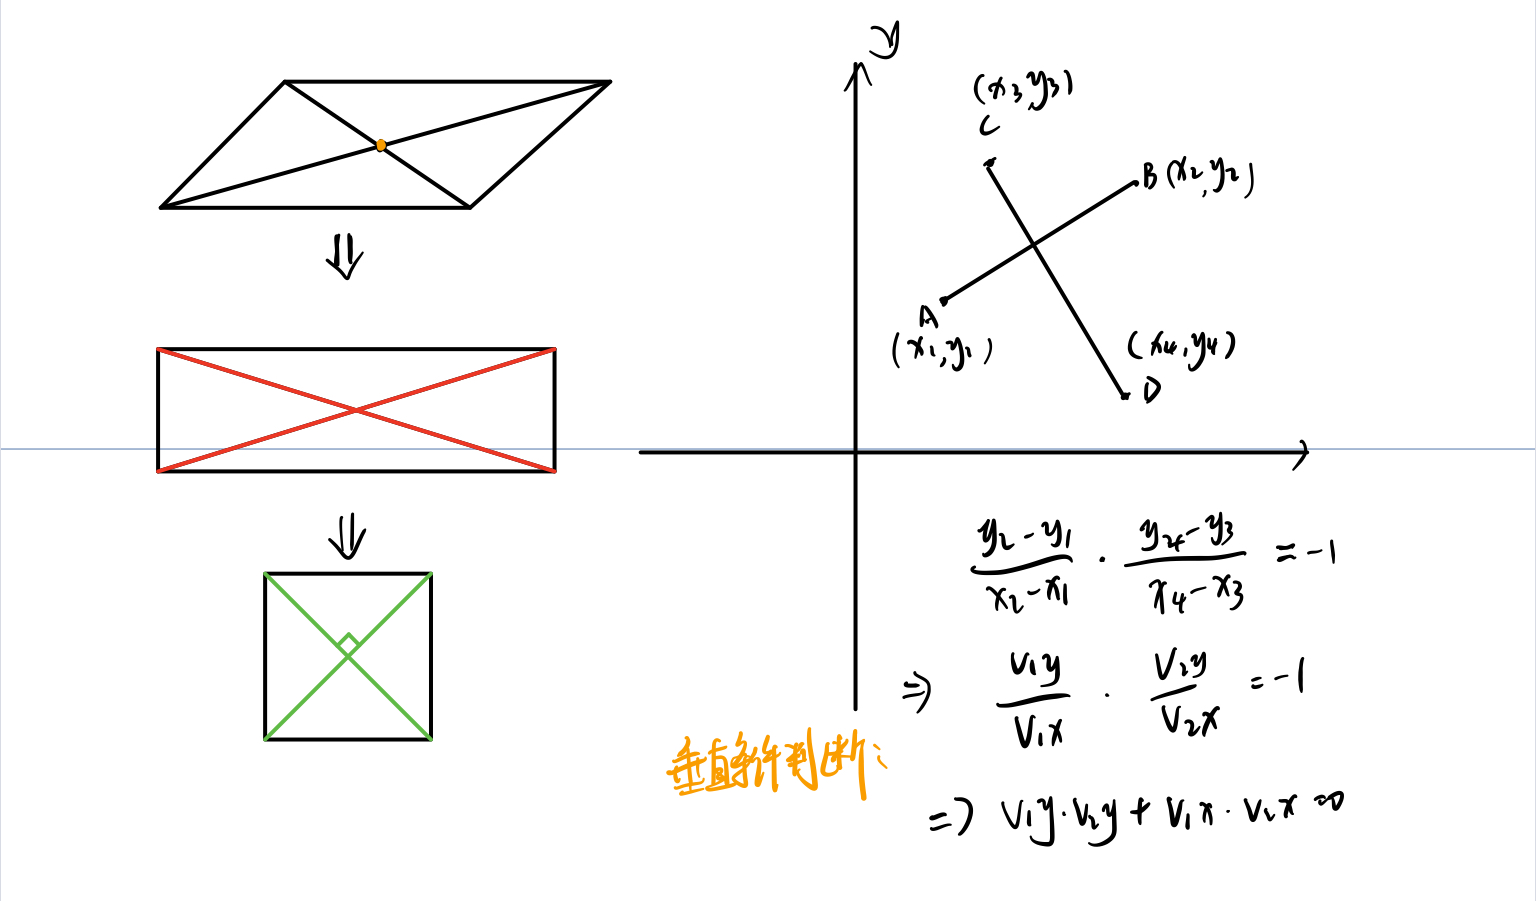 y
(x3,y3)
C
B(x2,y2)
A
(x1,y1)
(x4,y4)
D
y2-y1/x2-x1 · y4-y3/x4-x3 = -1
⇒ V1y/V1x · V2y/V2x = -1
垂直条件判断:
⇒ V1y·V2y + V1x·V2x = 0